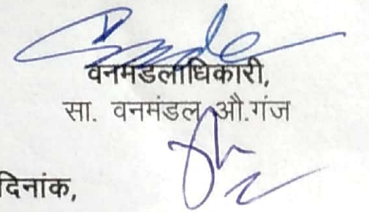 वनमंडलाधिकारी,
सा. वनमंडल औ.गंज
दिनांक,